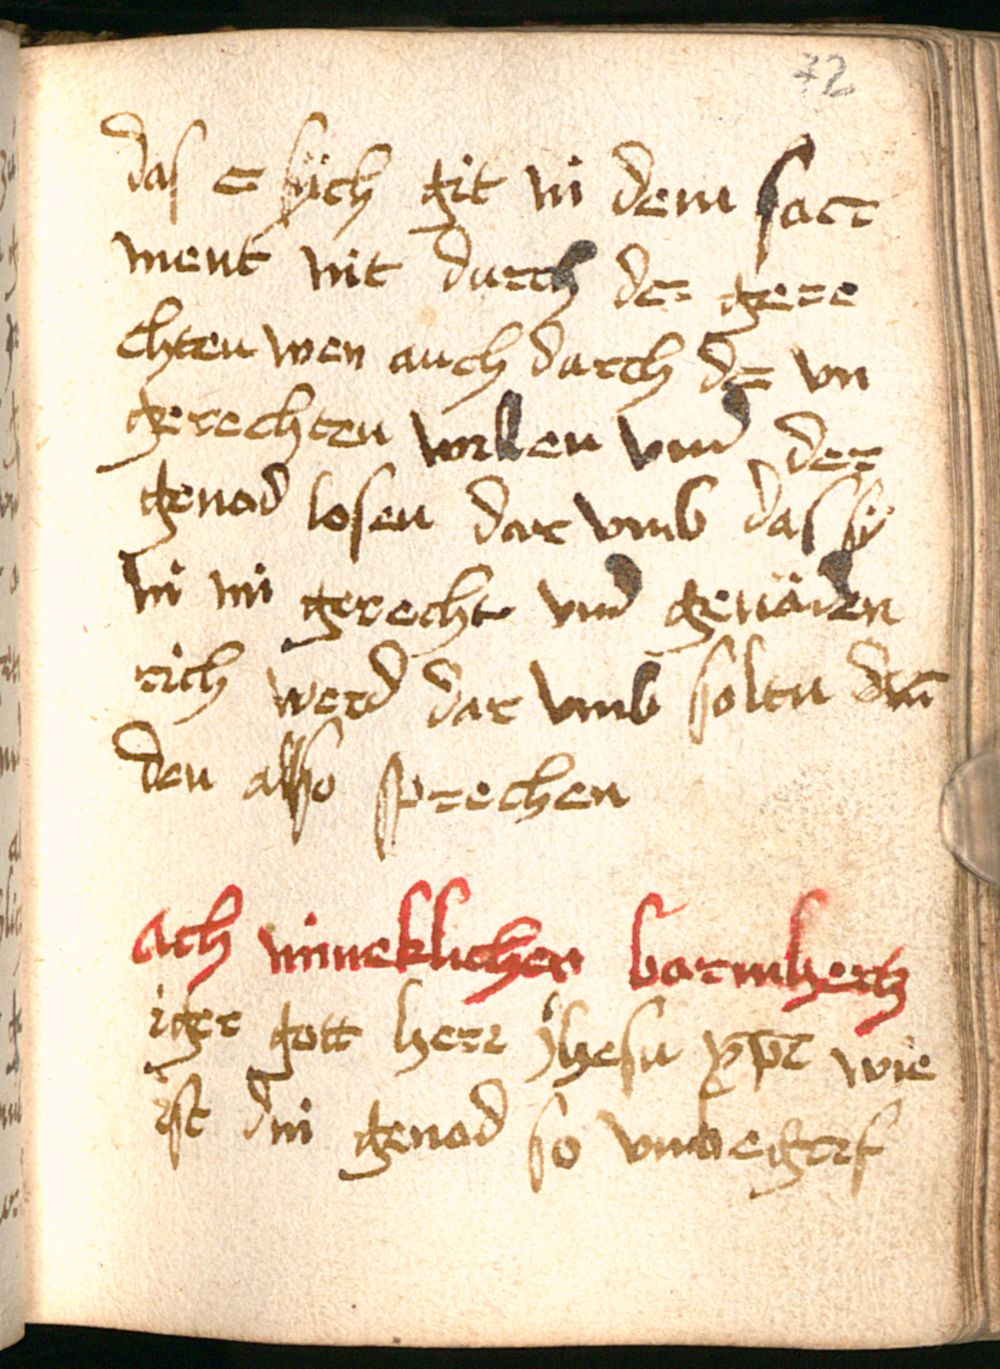 72
das er sich git in dem sacr
ment nit durch der gere
chten wen auch durch der vn
gerechten willen vnd der
genod losen dar vmb das sy
in mi gerecht vnd genäden
rich werd dar vmb soltu
den also sprechen
Ach minneklicher barmhertz
iger gott herr jhesu xpc wie
ist din genod so vnbegrif